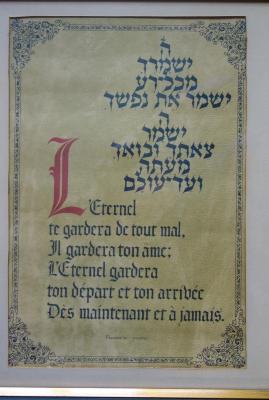 ה
ישמרך
מכל רע
ישמר את נפשך
ה
ישמר
צאתך ובואך
מעתה
ועד עולם
L'Eternel
te gardera de tout mal,
Il gardera ton ame;
L'Eternel gardera
ton départ et ton arrivée
Dès maintenant et à jamais.